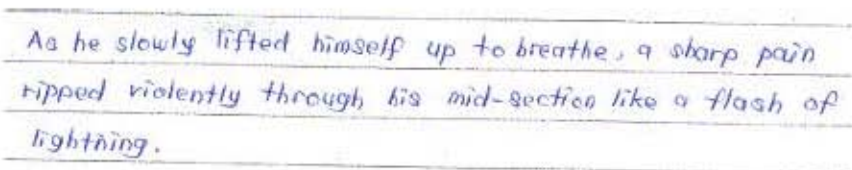 As he slowly lifted himself up to breathe, a sharp pain
ripped violently through his mid-section like a flash of
lightning.